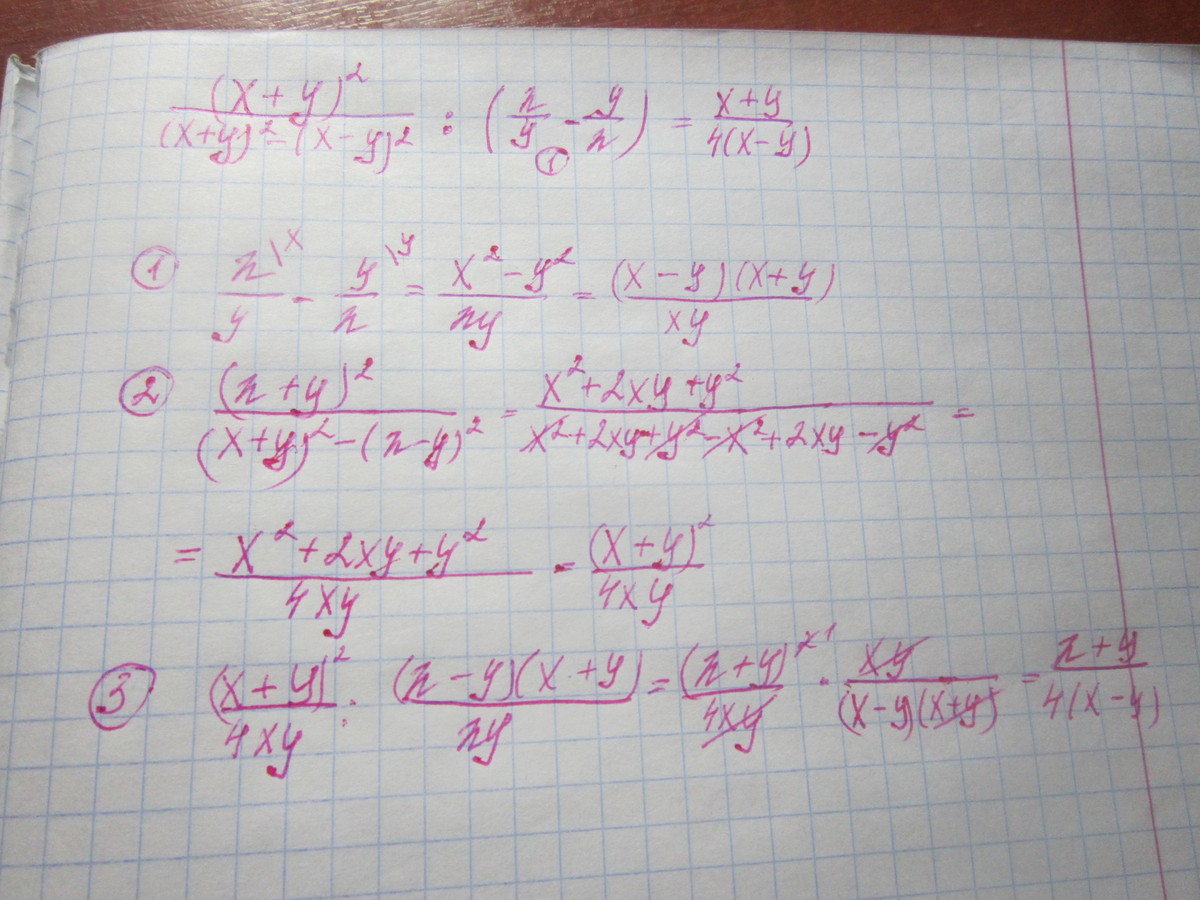 (x+y)²/((x+y)²-(x-y)²) : (x/y - y/x) = (x+y)/(4(x-y))
①
① x\x/y - y\y/x = (x²-y²)/(xy) = ((x-y)(x+y))/(xy)
② (x+y)²/((x+y)²-(x-y)²) = (x²+2xy+y²)/(x²+2xy+y²-x²+2xy-y²) =
= (x²+2xy+y²)/(4xy) = (x+y)²/(4xy)
③ (x+y)²/(4xy) : ((x-y)(x+y))/(xy) = (x+y)²\1/(4xy) · (xy)/((x-y)(x+y)) = (x+y)/(4(x-y))